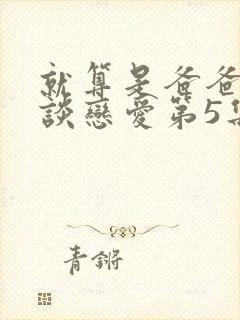 就算是爸爸
談戀愛第5集
青鏘